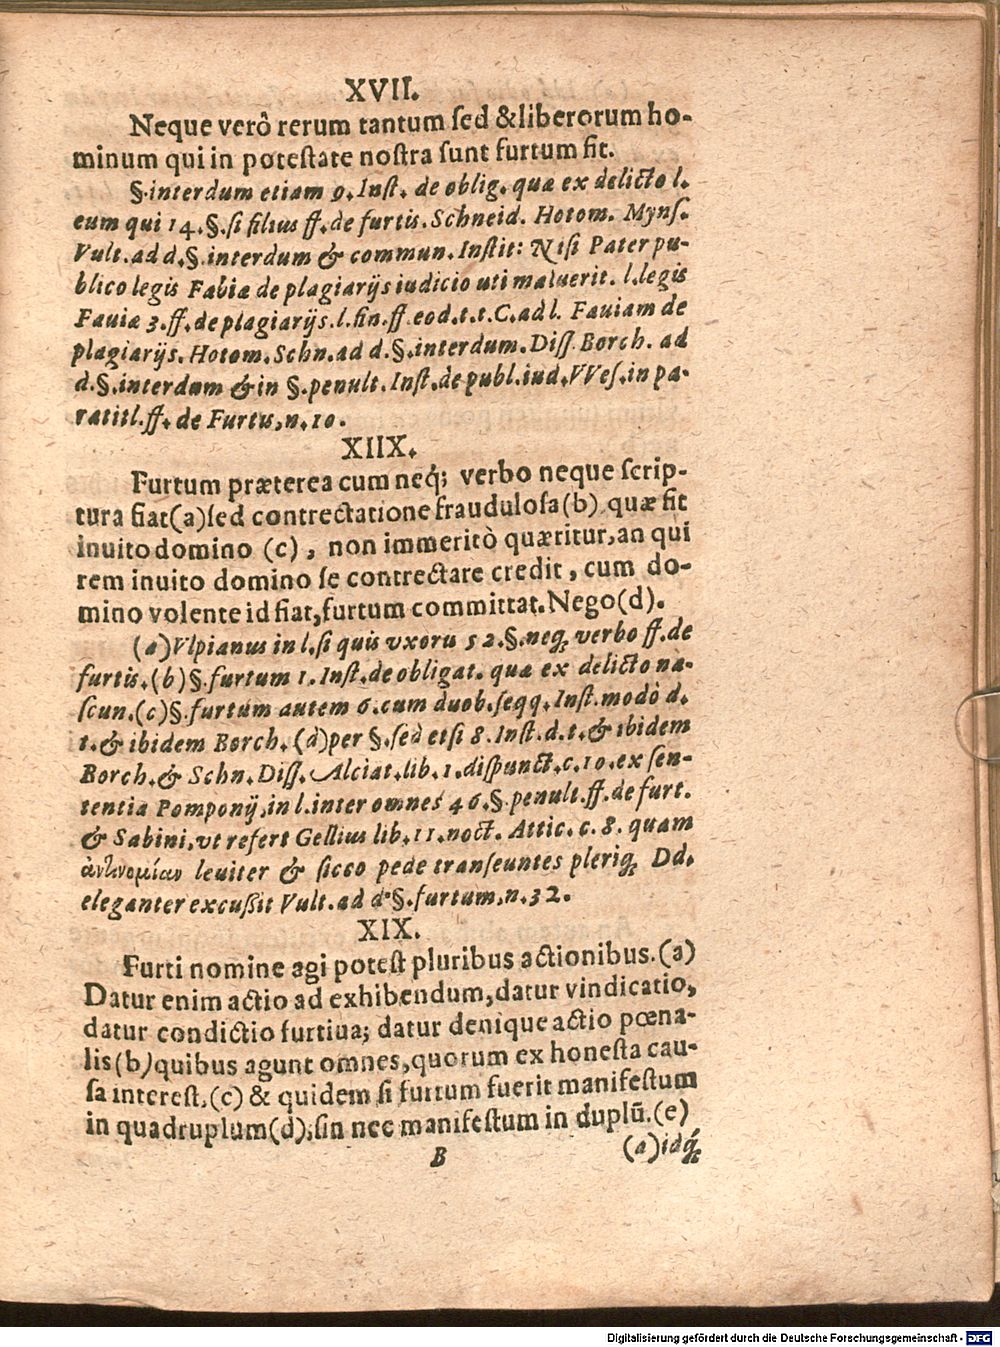 XVII.
Neque verô rerum tantum sed & liberorum ho-
minum qui in potestate nostra sunt furtum fit.
§. interdum etiam 9. Inst. de oblig. quæ ex delicto l.
eum qui 14. §. si filius ff. de furtis. Schneid. Hotom. Myns.
Vult. ad d. §. interdum & commun. Instit: Nisi Pater pu-
blico legis Fabiæ de plagiarijs iudicio uti maluerit. l. legis
Fauiæ 3. ff. de plagiarijs. l. fin. ff. eod. t. t. C. ad l. Fauiam de
plagiarijs. Hotom. Schn. ad d. §. interdum. Diss. Borch. ad
d. §. interdum & in §. penult. Inst. de publ. iud. VVes. in pa-
ratitl. ff. de Furtis, n. 10.
XIIX.
Furtum præterea cum neq́; verbo neque scrip-
tura fiat (a) sed contrectatione fraudulosa (b) quæ fit
inuito domino (c), non immeritò quæritur, an qui
rem inuito domino se contrectare credit, cum do-
mino volente id fiat, furtum committat. Nego (d).
(a) Vlpianus in l. si quis vxori 52. §. neq; verbo ff. de
furtis. (b) §. furtum 1. Inst. de obligat. quæ ex delicto na-
scun. (c) §. furtum autem 6. cum duob. seqq. Inst. modò d.
t. & ibidem Borch. (d) per §. sed etsi 8. Inst. d. t. & ibidem
Borch. & Schn. Diss. Alciat. lib. 1. dispunct. c. 10. ex sen-
tentia Pomponij, in l. inter omnes 46. §. penult. ff. de furt.
& Sabini, vt refert Gellius lib. 11. noct. Attic. c. 8. quam
ἀντινομίαν leuiter & sicco pede transeuntes pleriq; Dd.
eleganter excußit Vult. ad d. §. furtum, n. 32.
XIX.
Furti nomine agi potest pluribus actionibus. (a)
Datur enim actio ad exhibendum, datur vindicatio,
datur condictio furtiua; datur denique actio pœna-
lis (b) quibus agunt omnes, quorum ex honesta cau-
sa interest. (c) & quidem si furtum fuerit manifestum
in quadruplum (d), sin nec manifestum in duplū. (e)
B (a) idq́;
Digitalisierung gefördert durch die Deutsche Forschungsgemeinschaft - DFG